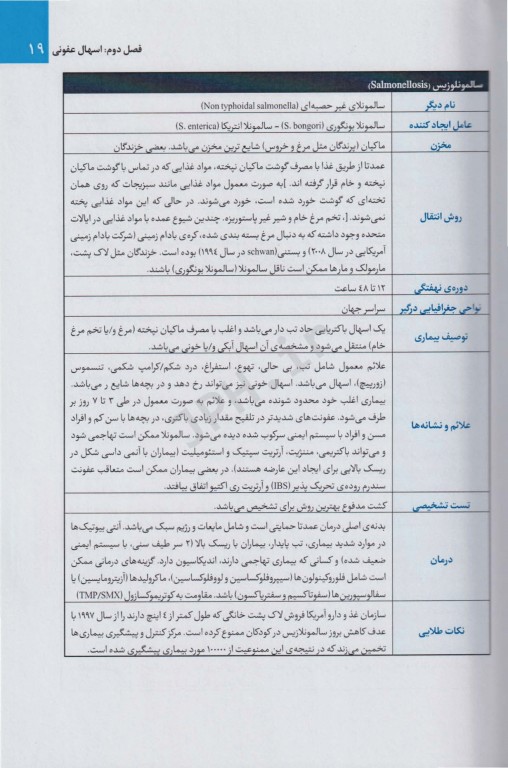 فصل دوم: اسهال عفونی ۱۹
سالمونلوزیس (Salmonellosis)
نام دیگر
سالمونلای غیر حصبه‌ای (Non typhoidal salmonella)
عامل ایجاد کننده
سالمونلا بونگوری (S. bongori) - سالمونلا انتریکا (S. enterica)
مخزن
ماکیان (پرندگان مثل مرغ و خروس) شایع ترین مخزن می‌باشد. بعضی خزندگان
روش انتقال
عمدتا از طریق غذا با مصرف گوشت ماکیان نپخته، مواد غذایی که در تماس با گوشت ماکیان
نپخته و خام قرار گرفته اند. [به صورت معمول مواد غذایی مانند سبزیجات که روی همان
تخته‌ای که گوشت خورد شده است، خورد می‌شوند. در حالی که این مواد غذایی پخته
نمی‌شوند. [، تخم مرغ خام و شیر غیر پاستوریزه. چندین شیوع عمده با مواد غذایی در ایالات
متحده وجود داشته که به دنبال مرغ بسته بندی شده، کره‌ی بادام زمینی (شرکت بادام زمینی
آمریکایی در سال ۲۰۰۸) و بستنی (schwan در سال ۱۹۹۴) بوده است. خزندگان مثل لاک پشت،
مارمولک و مارها ممکن است ناقل سالمونلا (سالمونلا بونگوری) باشند.
دوره‌ی نهفتگی
۱۲ تا ۴۸ ساعت
نواحی جغرافیایی درگیر
سراسر جهان
توصیف بیماری
یک اسهال باکتریایی حاد تب دار می‌باشد و اغلب با مصرف ماکیان نپخته (مرغ و/یا تخم مرغ
خام) منتقل می‌شود و مشخصه‌ی آن اسهال آبکی و/یا خونی می‌باشد.
علائم و نشانه‌ها
علائم معمول شامل تب، بی حالی، تهوع، استفراغ، درد شکم/کرامپ شکمی، تنسموس
(زورپیچ)، اسهال می‌باشد. اسهال خونی نیز می‌تواند رخ دهد و در بچه‌ها شایع ر می‌باشد.
بیماری اغلب خود محدود شونده می‌باشد، و علائم به صورت معمول در طی ۳ تا ۷ روز بر
طرف می‌شود. عفونت‌های شدیدتر در تلقیح مقدار زیادی باکتری، در بچه‌ها با سن کم و افراد
مسن و افراد با سیستم ایمنی سرکوب شده دیده می‌شود. سالمونلا ممکن است تهاجمی شود
و می‌تواند باکتریمی، مننژیت، آرتریت سپتیک و استئومیلیت (بیماران با آنمی داسی شکل در
ریسک بالایی برای ایجاد این عارضه هستند). در بعضی بیماران ممکن است متعاقب عفونت
سندرم روده‌ی تحریک پذیر (IBS) و آرتریت ری اکتیو اتفاق بیافتد.
تست تشخیصی
کشت مدفوع بهترین روش برای تشخیص می‌باشد.
درمان
بدنه‌ی اصلی درمان عمدتا حمایتی است و شامل مایعات و رژیم سبک می‌باشد. آنتی بیوتیک‌ها
در موارد شدید بیماری، تب پایدار، بیماران با ریسک بالا (۲ سر طیف سنی، با سیستم ایمنی
ضعیف شده) و کسانی که بیماری تهاجمی دارند، اندیکاسیون دارد. گزینه‌های درمانی ممکن
است شامل فلوروکینولون‌ها (سیپروفلوکساسین و لووفلوکساسین)، ماکرولیدها (آزیترومایسین) یا
سفالوسپورین‌ها (سفوتاکسیم و سفتریاکسون) باشد. مقاومت به کوتریموکسازول (TMP/SMX)
نکات طلایی
سازمان غذ و دارو آمریکا فروش لاک پشت خانگی که طول کمتر از ٤ اینچ دارند را از سال ۱۹۹۷ با
عدف کاهش بروز سالمونلازیس در کودکان ممنوع کرده است. مرکز کنترل و پیشگیری بیماری ها
تخمین می‌زند که در نتیجه‌ی این ممنوعیت از ۱۰۰۰۰۰ مورد بیماری پیشگیری شده است.